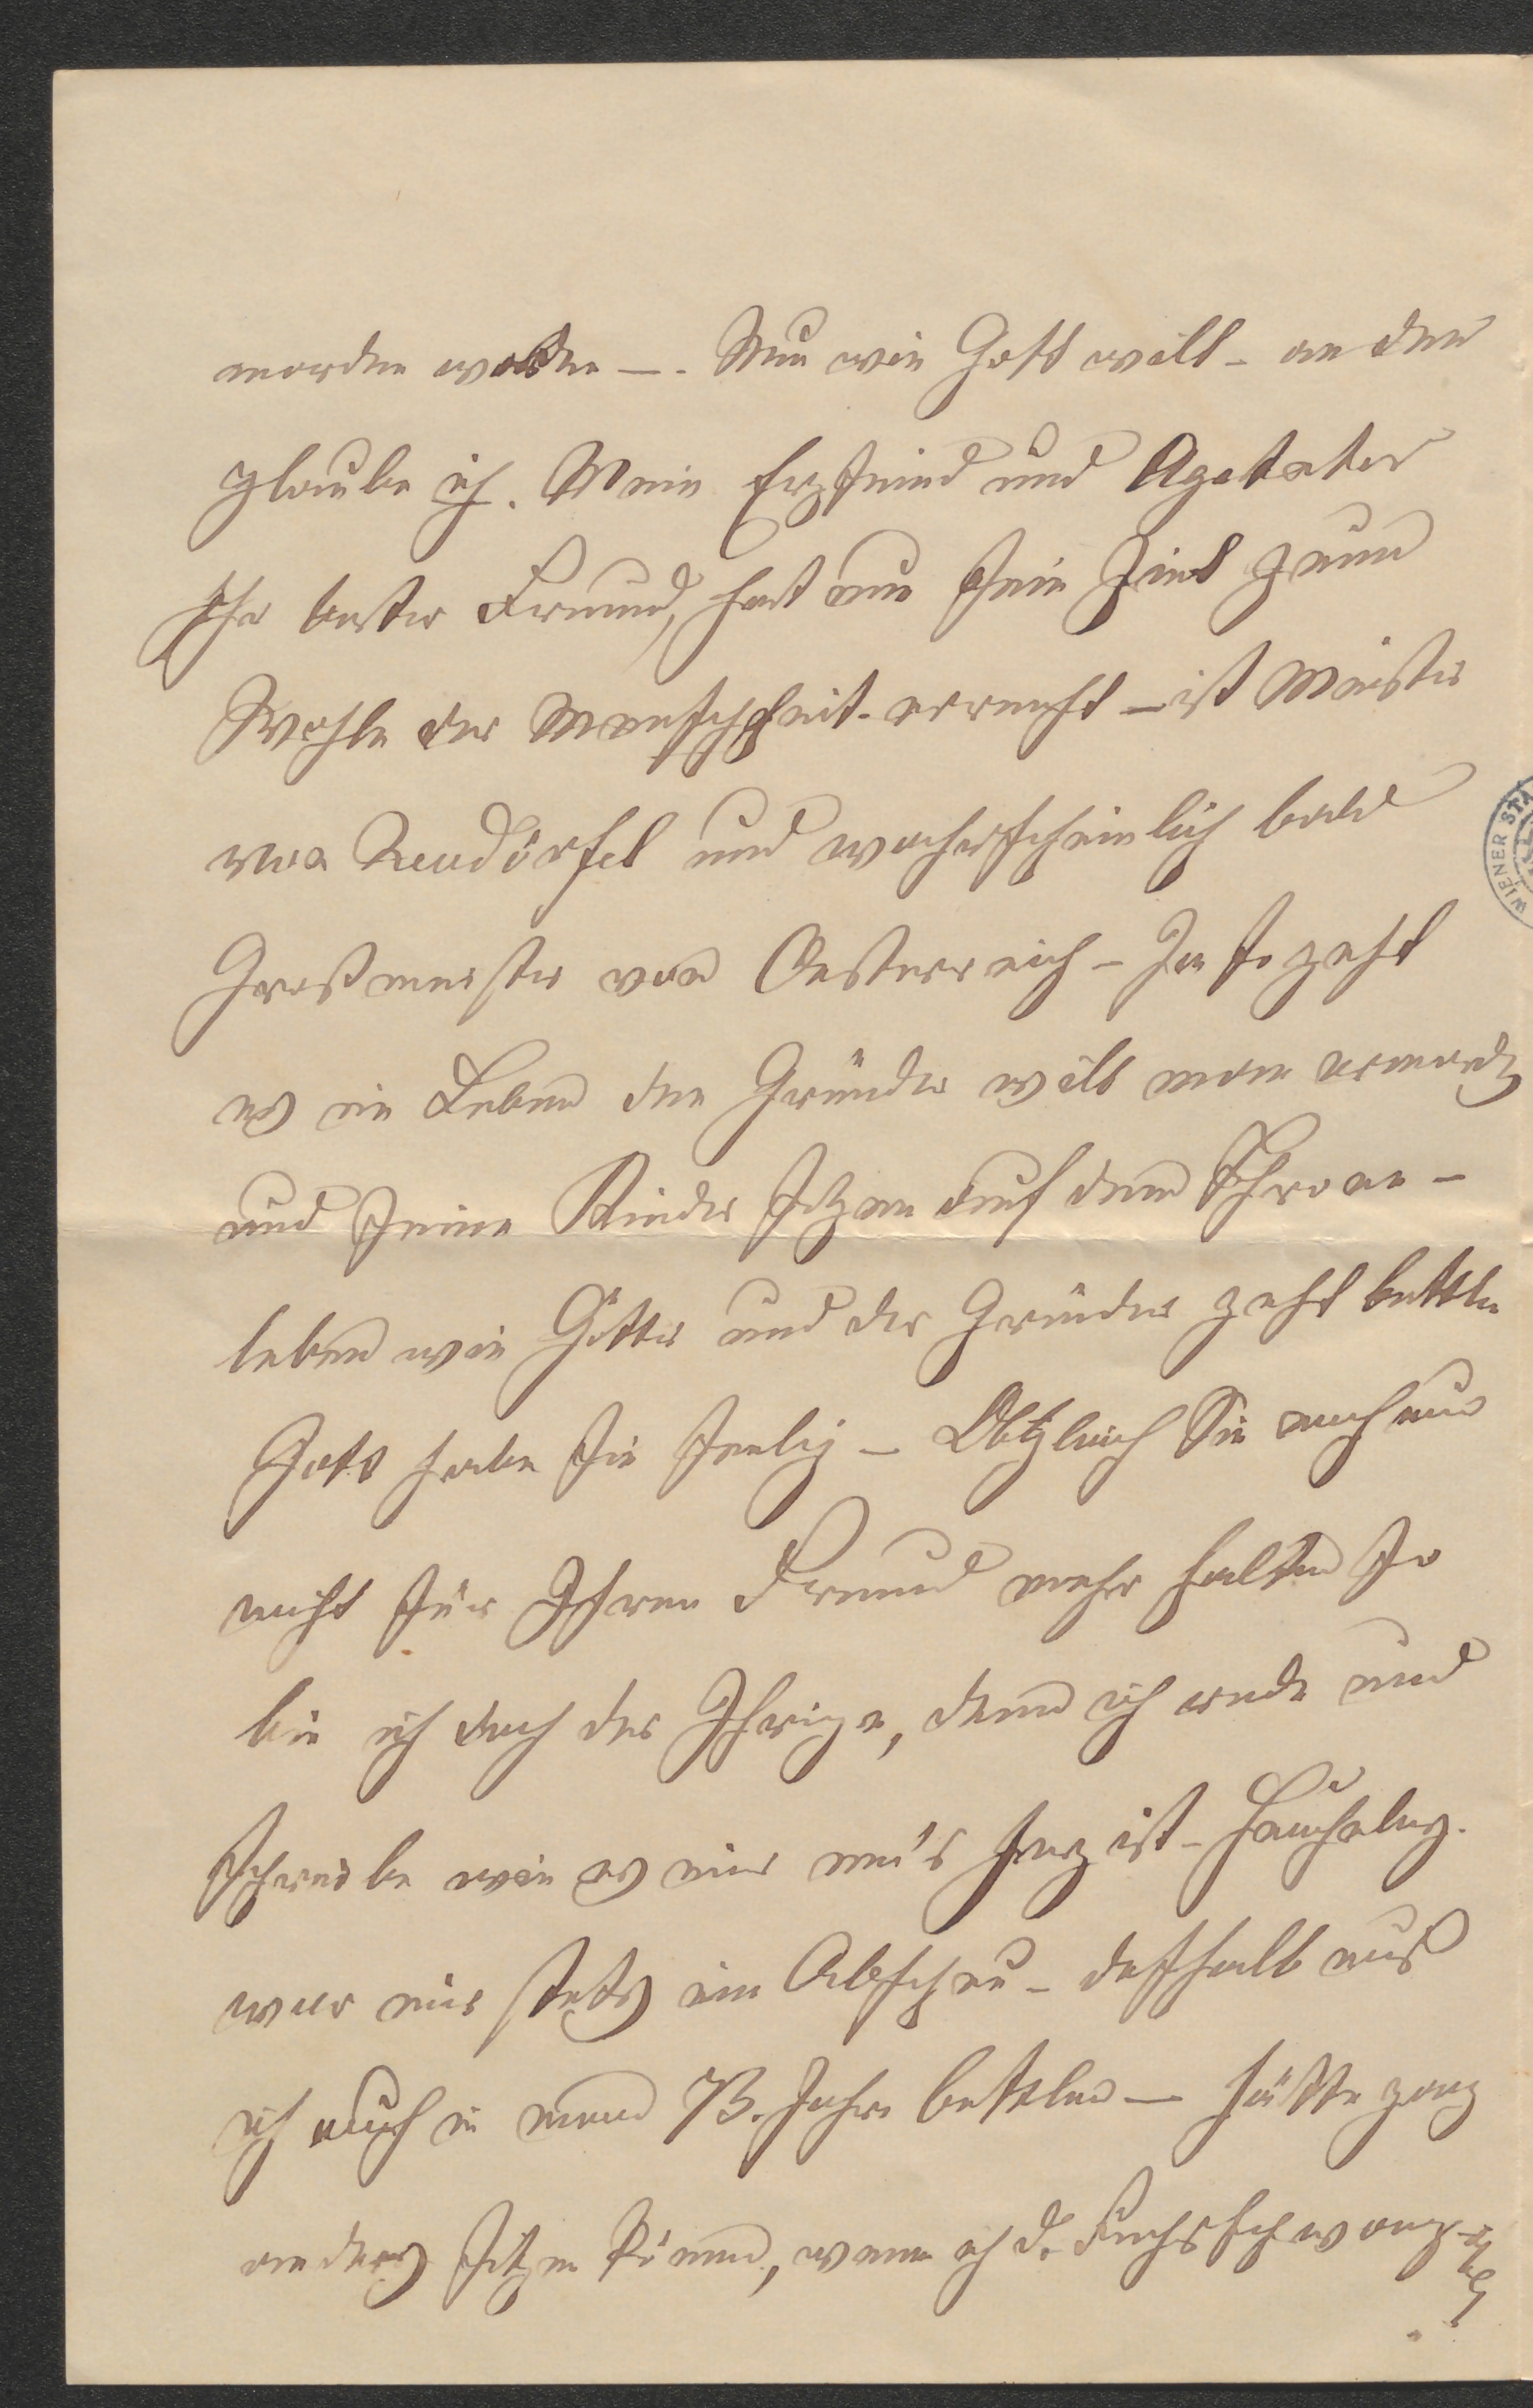 morden wollen —. Nun wie Gott will – an den
glaube ich. Mein Erzfeind und Agitator
Ihr bester Freund, hat nun sein Ziel zum
Wohle der Menschheit erreicht – ist Meister
von Neudörfel und wahrscheinlich bald
Großmeister von Oesterreich – Ja so geht
es im Leben den Gründer will man ermorden
und seine Kinder sitzen auf dem Throne –
leben wie Götter und der Gründer geht betteln
Gott habe sie seelig – Obgleich Sie mich nun
nicht für Ihren Freund mehr halten so
bin ich doch der Ihrige, denn ich rede und
schreibe wie es mir um's Herz ist – Heucheley
war mir stets ein Abscheu – desshalb muß
ich auch in mein 73. Jahre betteln — hätte ganz
anders sitzen können, wenn ich d. Fuchsschwanz
WIENER STA